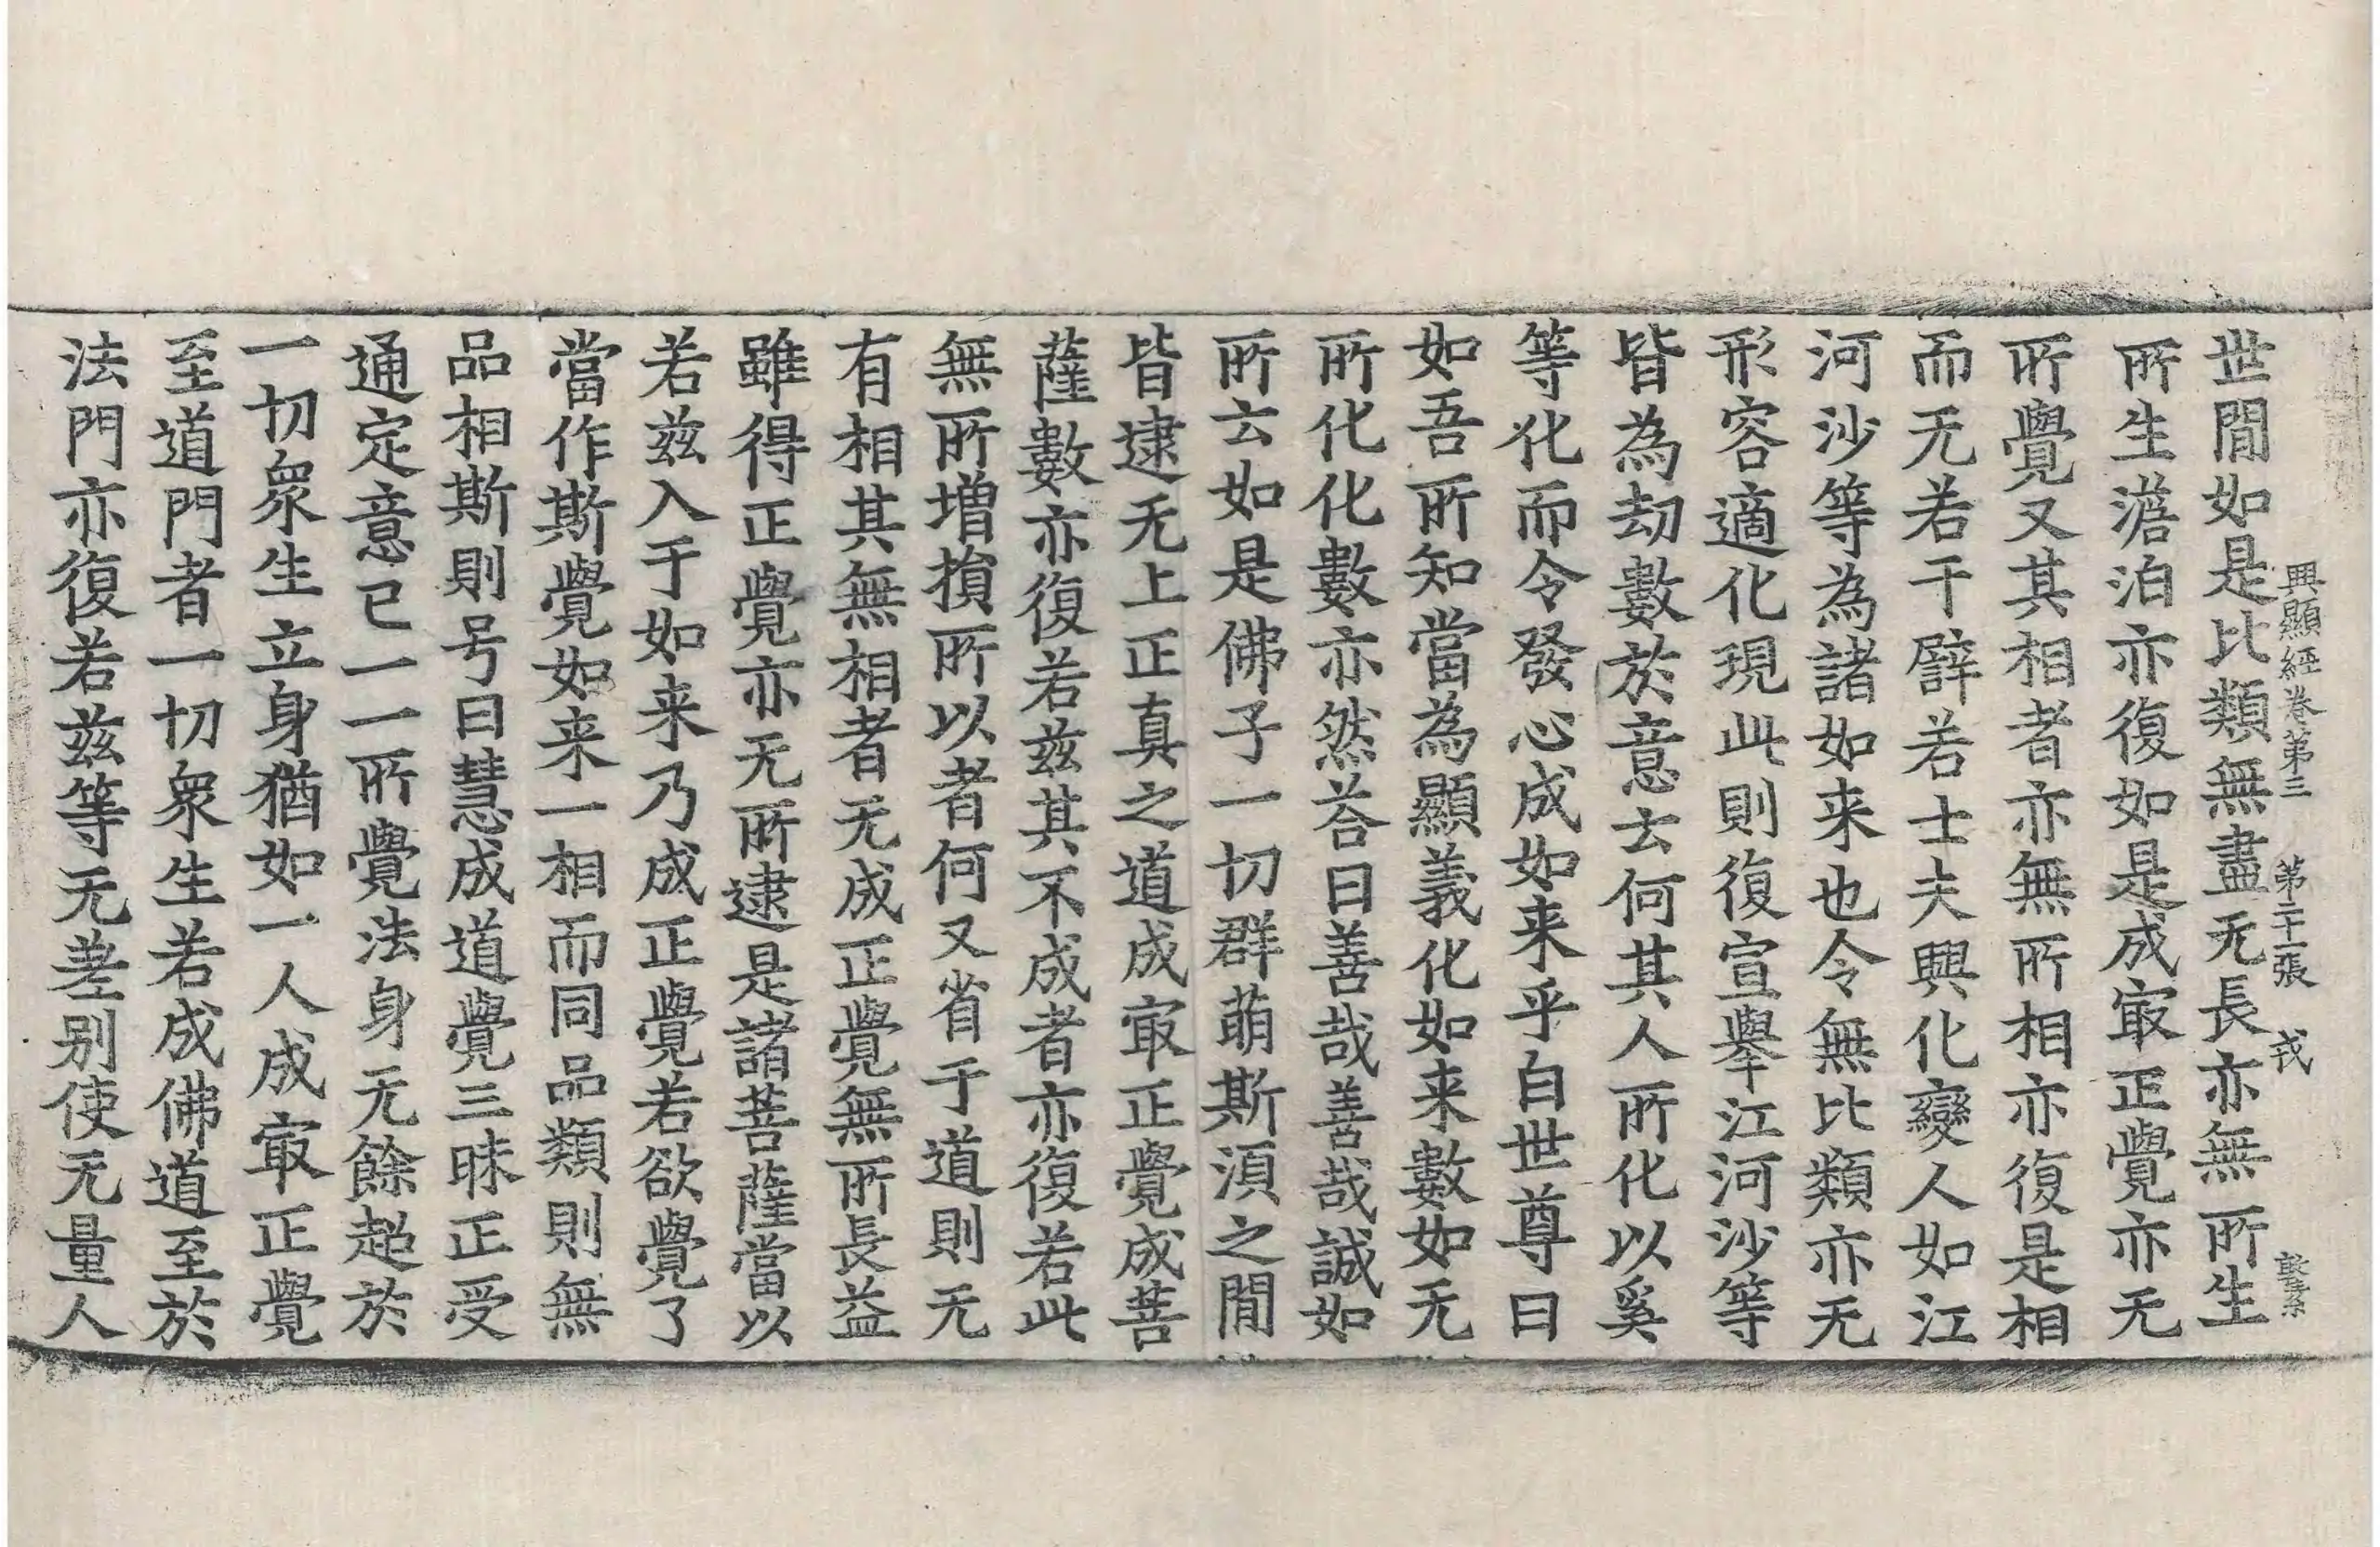 世間如是比類無盡无長亦無所生
興顯經卷第三 第二十一張 戎
所生澹泊亦復如是成㝡正覺亦无
所覺又其相者亦無所相亦復是相
而无若干譬若士夫興化變人如江
河沙等為諸如来也令無比類亦无
形容適化現此則復宣舉江河沙等
皆為劫數於意云何其人所化以奚
等化而令發心成如来乎白世尊曰
如吾所知當為顯義化如来數如无
所化化數亦然荅曰善哉善哉誠如
所云如是佛子一切群萌斯湏之間
皆逮无上正真之道成㝡正覺成菩
薩數亦復若兹其不成者亦復若此
無所増損所以者何又省于道則无
有相其無相者无成正覺無所長益
雖得正覺亦无所逮是諸菩薩當以
若兹入于如来乃成正覺若欲覺了
當作斯覺如来一相而同品類則無
品相斯則号曰慧成道覺三昧正受
通定意已一一所覺法身无餘超於
一切衆生立身猶如一人成㝡正覺
至道門者一切衆生若成佛道至於
法門亦復若兹等无差别使无量人